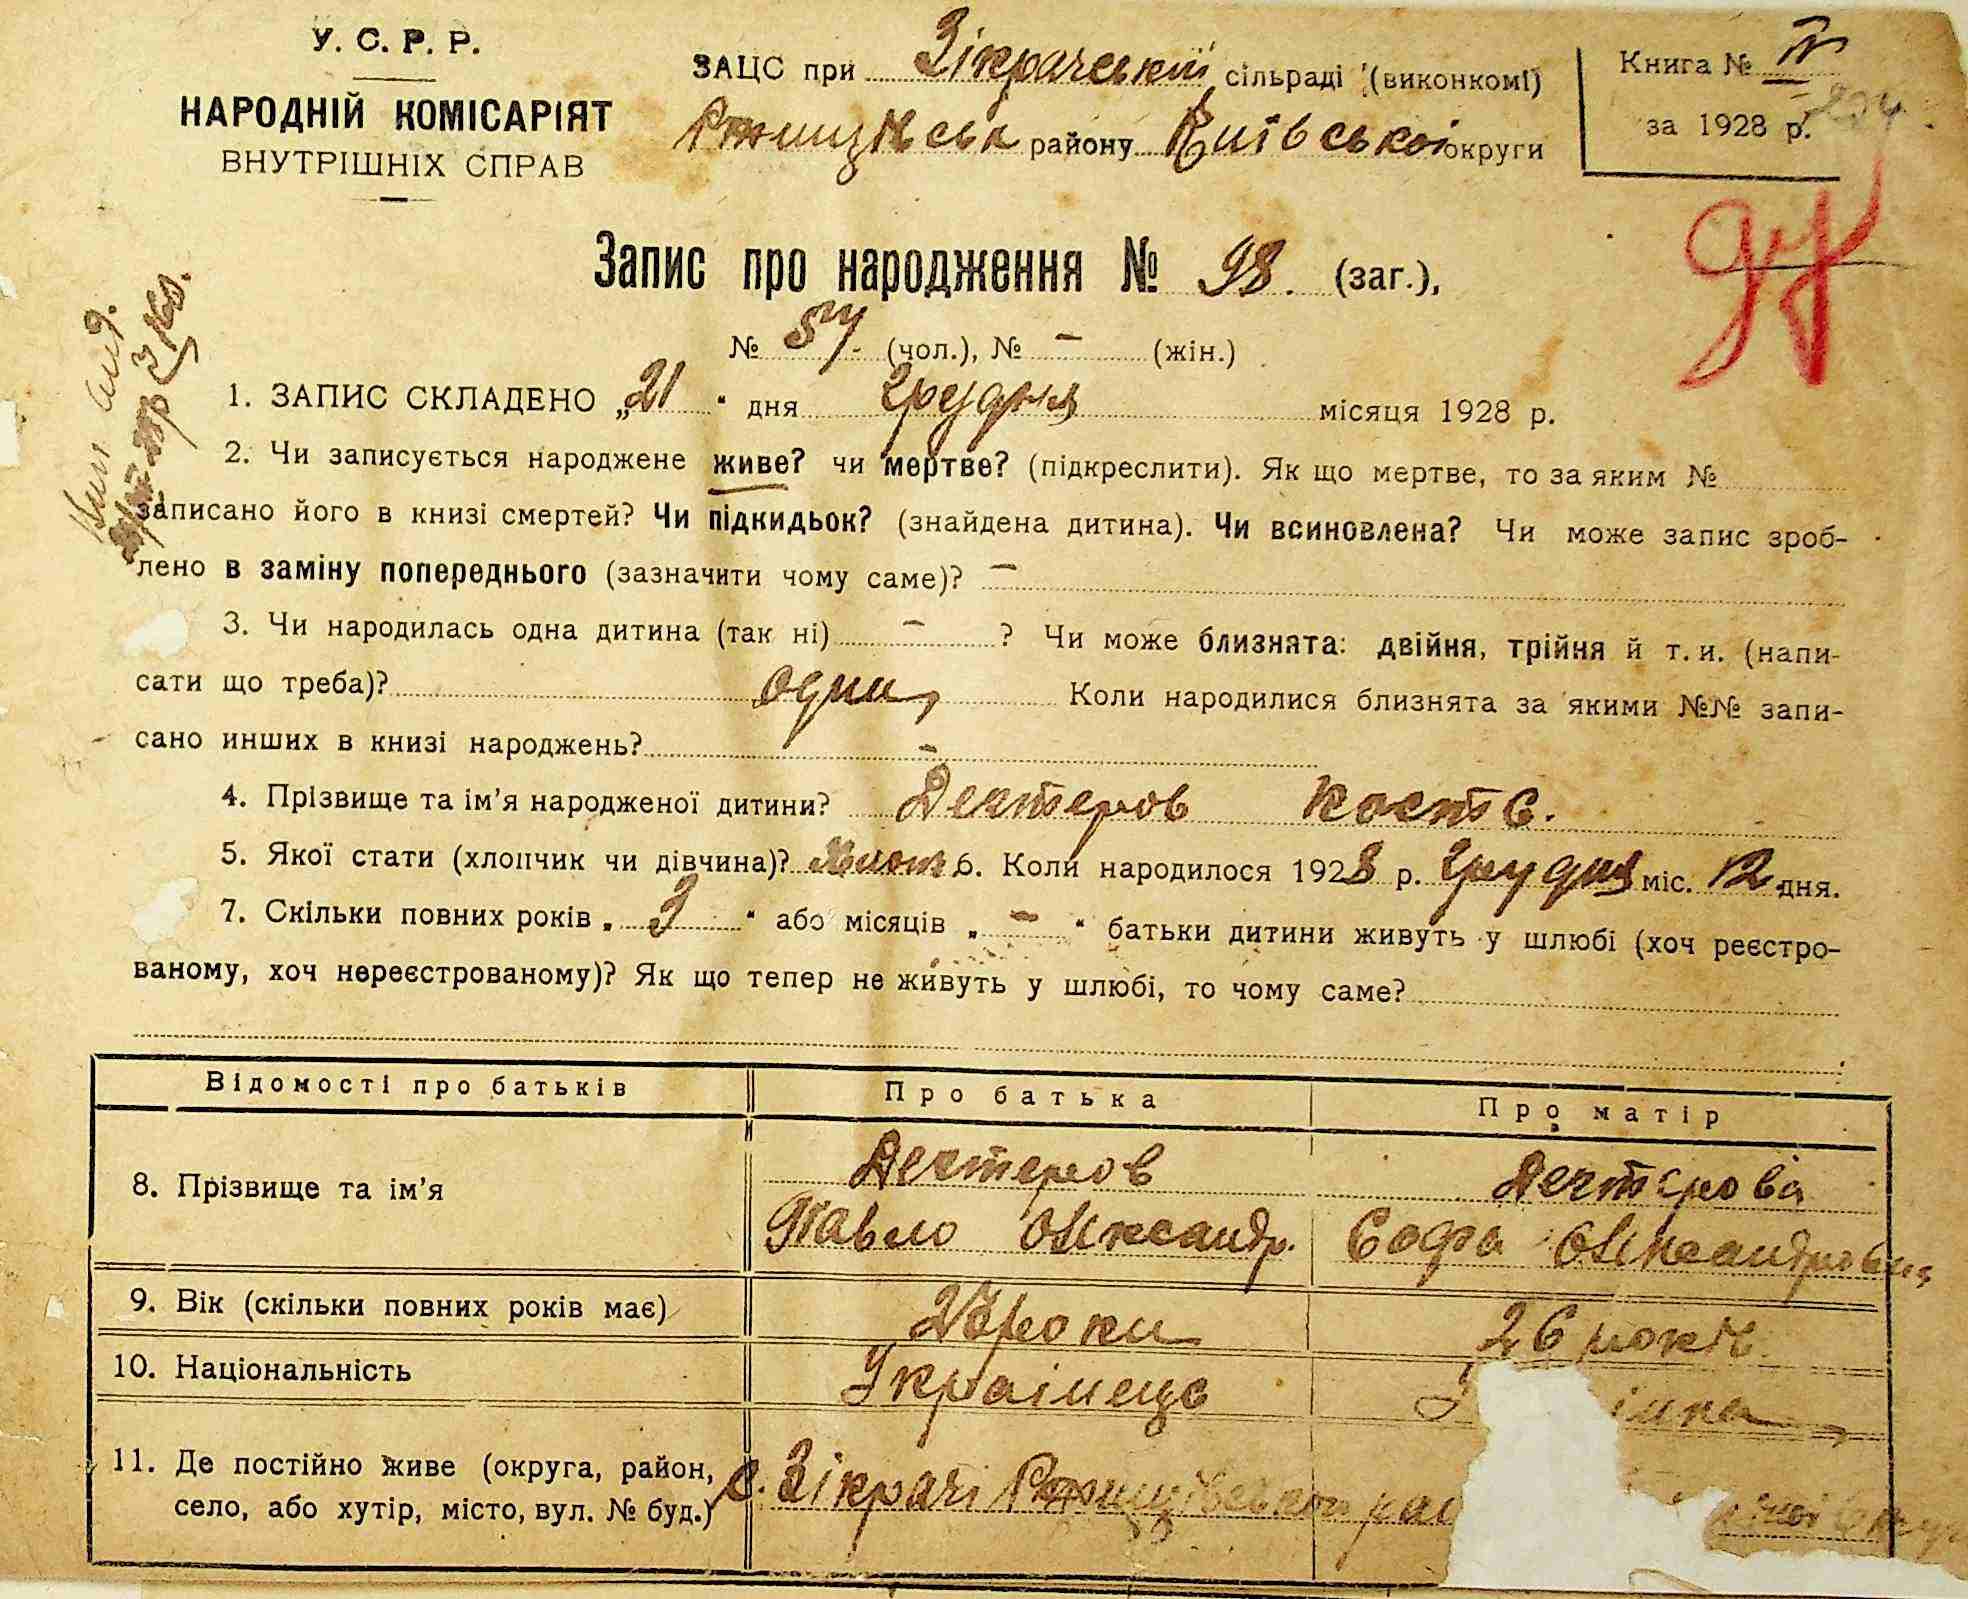 У. С. Р. Р.
НАРОДНІЙ КОМІСАРІЯТ
ВНУТРІШНІХ СПРАВ
ЗАЦС при Зікрачській сільраді (виконкомі)
Ржищівськ району Київської округи
Книга № IV
за 1928 р.
Запис про народження № 98. (заг.),
№ 57 (чол.), № – (жін.)
1. ЗАПИС СКЛАДЕНО „21“ дня грудня місяця 1928 р.
2. Чи записується народжене живе? чи мертве? (підкреслити). Як що мертве, то за яким №
записано його в книзі смертей? Чи підкидьок? (знайдена дитина). Чи всиновлена? Чи може запис зроб-
лено в заміну попереднього (зазначити чому саме)? –
3. Чи народилась одна дитина (так ні) – ? Чи може близнята: двійня, трійня й т. и. (напи-
сати що треба)? одна, Коли народилися близнята за якими №№ запи-
сано инших в книзі народжень? –
4. Прізвище та ім’я народженої дитини? Дехтеров Кость.
5. Якої стати (хлопчик чи дівчина)? 6. Коли народилося 1928 р. грудня міс. 12 дня.
7. Скільки повних років „ 3 “ або місяців „ – “ батьки дитини живуть у шлюбі (хоч реєстро-
ваному, хоч нереєстрованому)? Як що тепер не живуть у шлюбі, то чому саме?
Відомості про батьків Про батька Про матір
8. Прізвище та ім’я Дехтеров Дехтерова
Павло Олександр. Софія Олександровна
9. Вік (скільки повних років має) роки 26 років
10. Національність Українець
11. Де постійно живе (округа, район,
село, або хутір, місто, вул. № буд.) с. Зікрачі Ржищівського